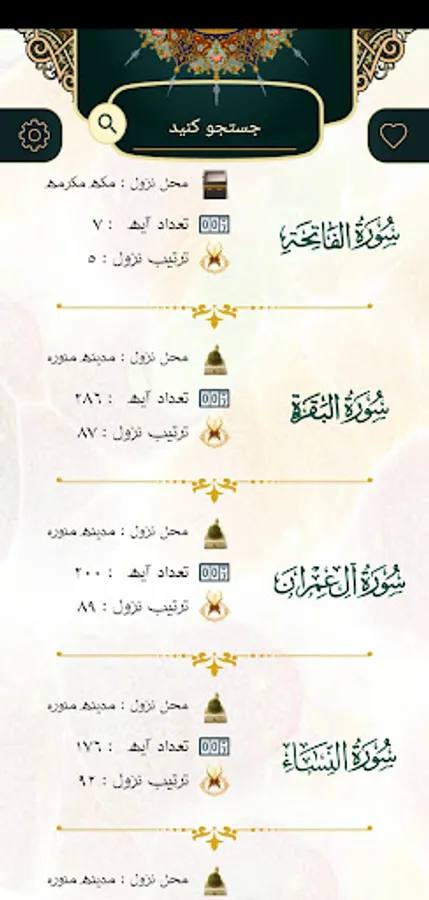 جستجو کنید
سُورَةُ الفَاتِحَةِ
محل نزول : مکه مکرمه
تعداد آیه : ۷
ترتیب نزول : ۵
سُورَةُ البَقَرَةِ
محل نزول : مدینه منوره
تعداد آیه : ۲۸۶
ترتیب نزول : ۸۷
سُورَةُ آلِ عِمْرَان
محل نزول : مدینه منوره
تعداد آیه : ۲۰۰
ترتیب نزول : ۸۹
سُورَةُ النِّسَاءِ
محل نزول : مدینه منوره
تعداد آیه : ۱۷۶
ترتیب نزول : ۹۲
محل نزول : مدینه منوره